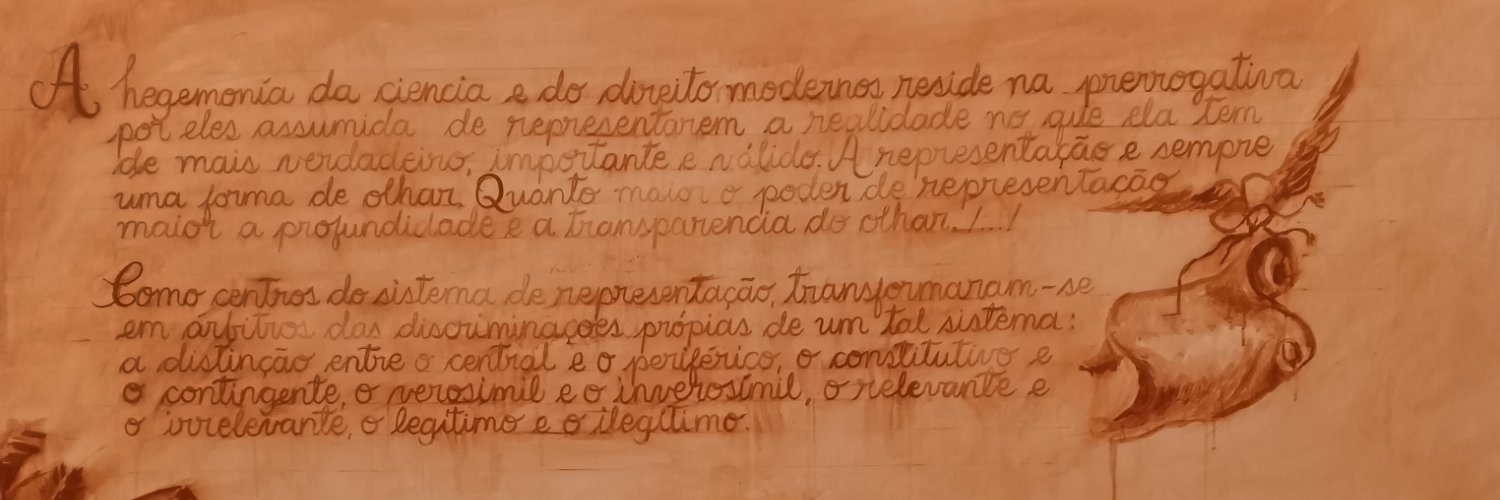 A hegemonía da ciencia e do direito modernos reside na prerrogativa
por eles assumida de representarem a realidade no que ela tem
de mais verdadeiro, importante e válido. A representação e sempre
uma forma de olhar. Quanto maior o poder de representação
maior a profundidade e a transparencia do olhar./.../
Como centros do sistema de representação, transformaram-se
em árbitros das discriminações própias de um tal sistema:
a distinção entre o central e o periférico, o constitutivo e
o contingente, o verosímil e o inverosímil, o relevante e
o irrelevante, o legítimo e o ilegítimo.